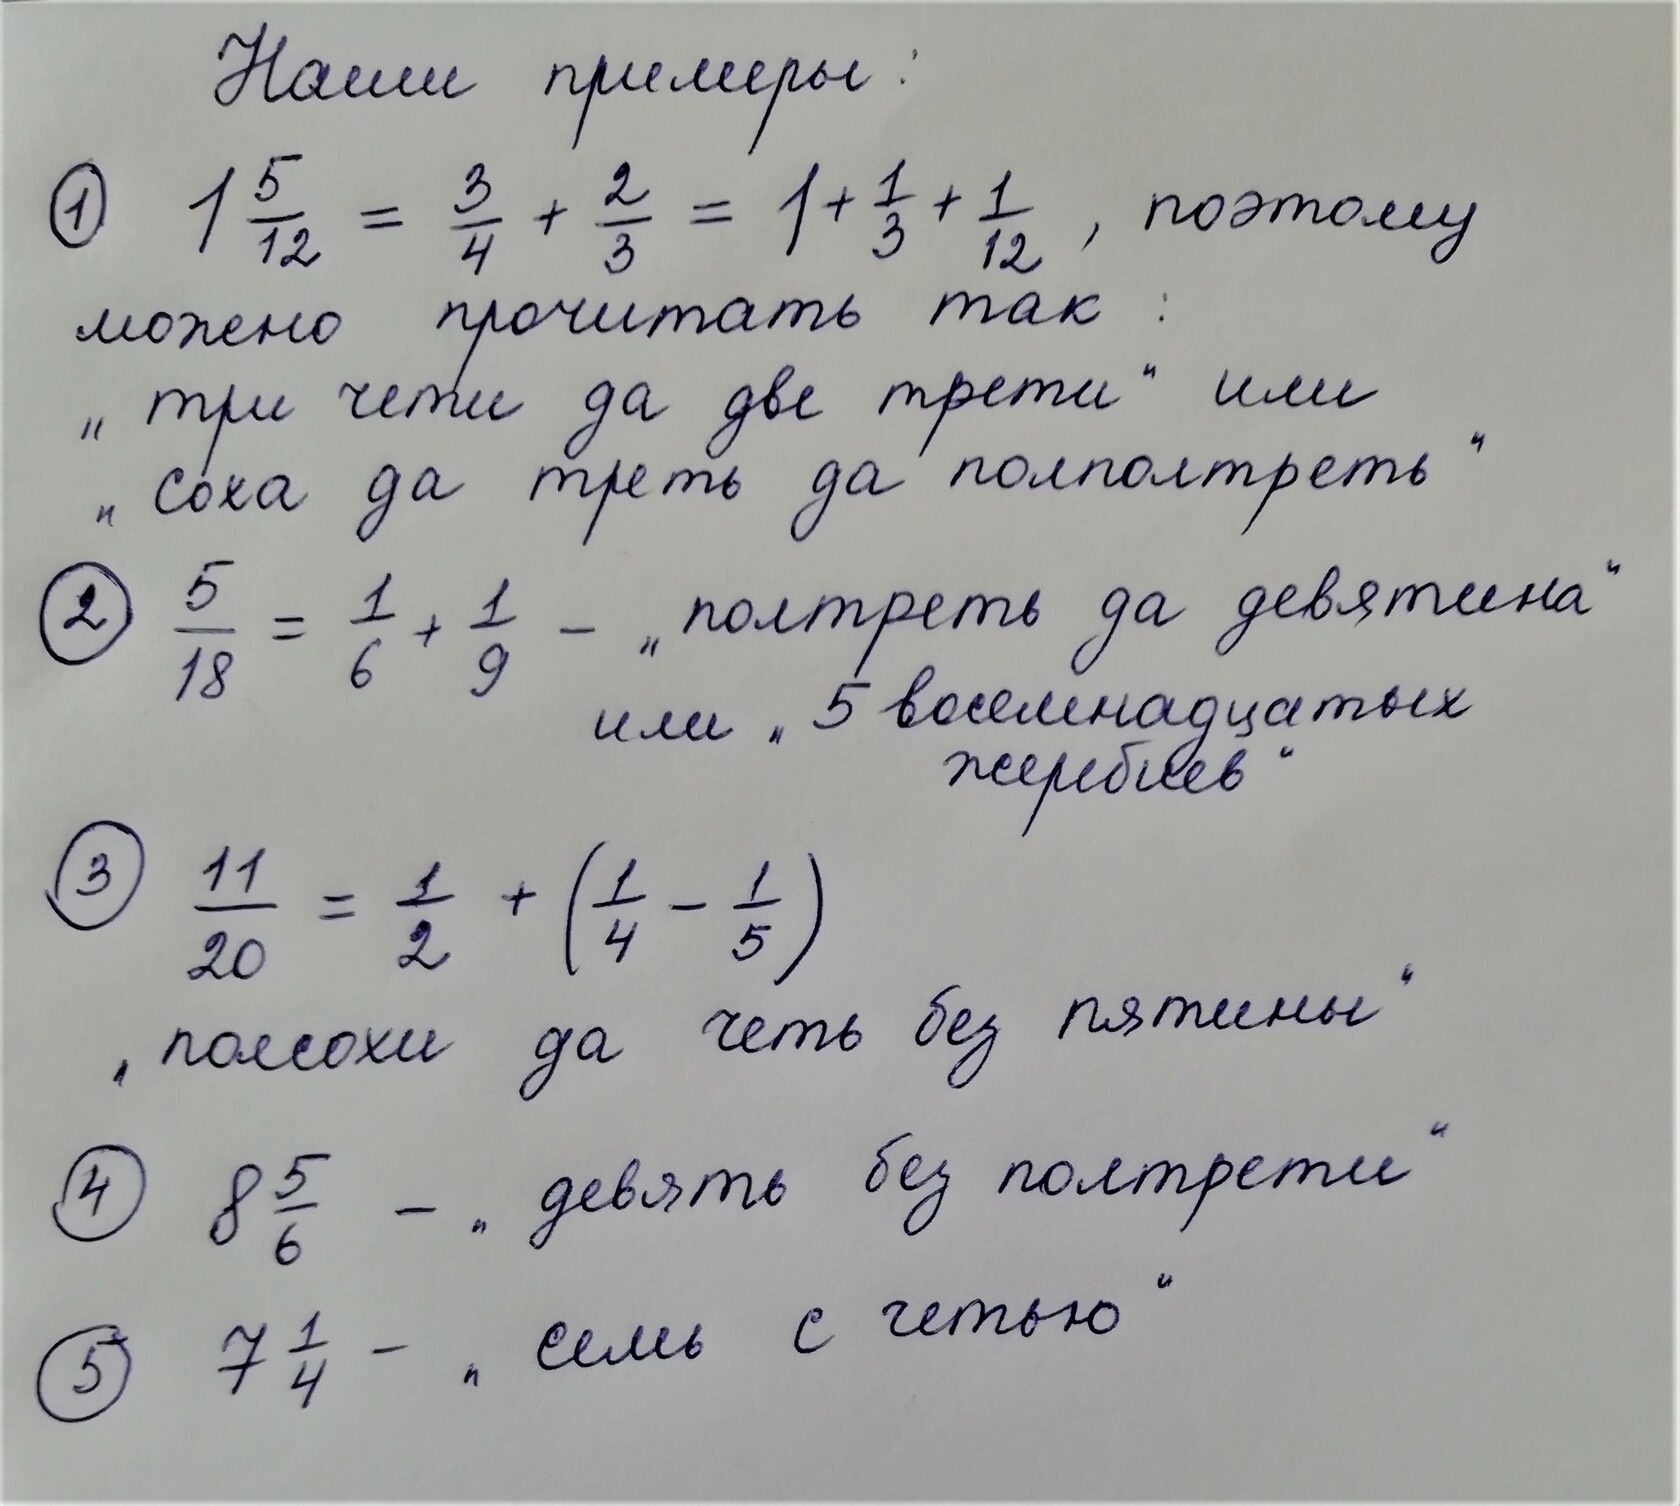 Наши примеры:
① 1 5/12 = 3/4 + 2/3 = 1 + 1/3 + 1/12, поэтому
можено прочитать так:
„три чети да две трети“ или
„соха да треть да полполтреть“
② 5/18 = 1/6 + 1/9 – „полтреть да девятина“
или „5 восемнадцатых
жеребиев“
③ 11/20 = 1/2 + (1/4 – 1/5)
„полсохи да четь без пятины“
④ 8 5/6 – „девять без полтрети“
⑤ 7 1/4 – „семь с четью“